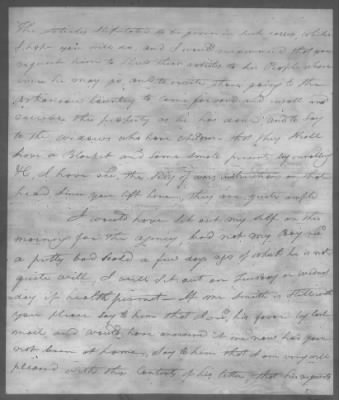 The articles stipulated to be given in such cases, which
I hope you will do, and I would recommend that you
request him to show these articles to his People where
ever he may go, and to invite those going to the
Arkansas Country to come forward and enroll and
receive this property as he has done and to say
to the widows who have children that they shall
have a Blanket and some small present by enrolling
&c, I have seen the of my instructions on that
head since you left here, they are quite ample
I would have set out my self on this
morning for the agency, had not my Boy
a pretty bad a few days ago of what he is not
quite well, I will set out on Tuesday or wednes
day if health permit. If Mr Smith is still with
you please say to him that I his favor by last
mail and would have answered it ere now had I
not been at home, Say to him that I am very well
pleased with the Contents of his letter & that his requests